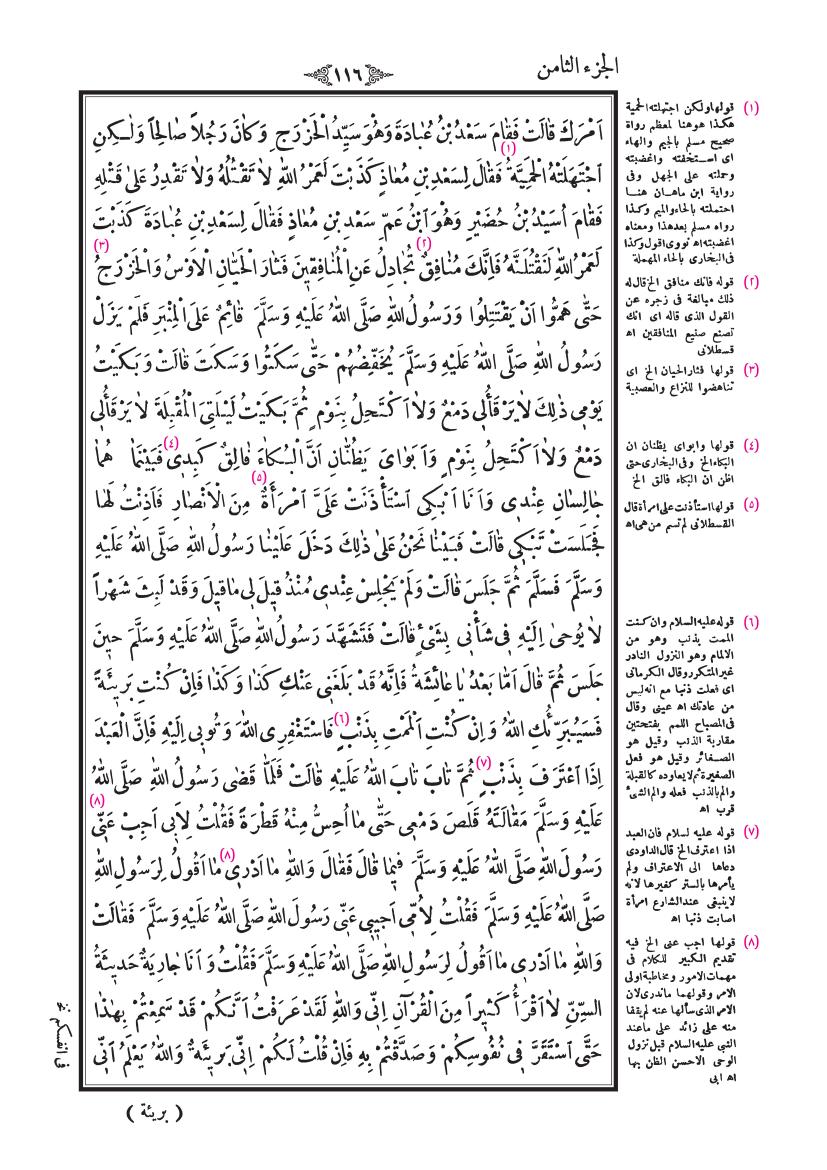 الجزء الثامن
١١٦
اَمْرَكَ قَالَتْ فَقَامَ سَعْدُ بْنُ عُبَادَةَ وَهُوَ سَيِّدُ الْخَزْرَجِ وَكَانَ رَجُلاً صَالِحاً وَلٰكِنِ
اجْتَهَلَتْهُ الْحَمِيَّةُ (١) فَقَالَ لِسَعْدِ بْنِ مُعَاذٍ كَذَبْتَ لَعَمْرُ اللّٰهِ لاَ تَقْتُلُهُ وَلاَ تَقْدِرُ عَلَى قَتْلِهِ
فَقَامَ اُسَيْدُ بْنُ حُضَيْرٍ وَهُوَ ابْنُ عَمِّ سَعْدِ بْنِ مُعَاذٍ فَقَالَ لِسَعْدِ بْنِ عُبَادَةَ كَذَبْتَ
لَعَمْرُ اللّٰهِ لَنَقْتُلَنَّهُ فَاِنَّكَ مُنَافِقٌ (٢) تُجَادِلُ عَنِ الْمُنَافِقِينَ فَثَارَ الْحَيَّانِ الْاَوْسُ وَالْخَزْرَجُ (٣)
حَتّٰى هَمُّوا اَنْ يَقْتَتِلُوا وَرَسُولُ اللّٰهِ صَلَّى اللّٰهُ عَلَيْهِ وَسَلَّمَ قَائِمٌ عَلَى الْمِنْبَرِ فَلَمْ يَزَلْ
رَسُولُ اللّٰهِ صَلَّى اللّٰهُ عَلَيْهِ وَسَلَّمَ يُخَفِّضُهُمْ حَتّٰى سَكَتُوا وَسَكَتَ قَالَتْ وَبَكَيْتُ
يَوْمِي ذٰلِكَ لاَ يَرْقَأُ لِي دَمْعٌ وَلاَ اَكْتَحِلُ بِنَوْمٍ ثُمَّ بَكَيْتُ لَيْلَتِيَ الْمُقْبِلَةَ لاَ يَرْقَأُ لِي
دَمْعٌ وَلاَ اَكْتَحِلُ بِنَوْمٍ وَاَبَوَايَ يَظُنَّانِ اَنَّ الْبُكَاءَ فَالِقٌ كَبِدِي (٤) فَبَيْنَمَا هُمَا
جَالِسَانِ عِنْدِي وَاَنَا اَبْكِي اسْتَأْذَنَتْ عَلَيَّ امْرَأَةٌ (٥) مِنَ الْاَنْصَارِ فَاَذِنْتُ لَهَا
فَجَلَسَتْ تَبْكِي قَالَتْ فَبَيْنَا نَحْنُ عَلَى ذٰلِكَ دَخَلَ عَلَيْنَا رَسُولُ اللّٰهِ صَلَّى اللّٰهُ عَلَيْهِ
وَسَلَّمَ فَسَلَّمَ ثُمَّ جَلَسَ قَالَتْ وَلَمْ يَجْلِسْ عِنْدِي مُنْذُ قِيلَ لِي مَا قِيلَ وَقَدْ لَبِثَ شَهْراً
لاَ يُوحٰى اِلَيْهِ فِي شَأْنِي بِشَيْءٍ قَالَتْ فَتَشَهَّدَ رَسُولُ اللّٰهِ صَلَّى اللّٰهُ عَلَيْهِ وَسَلَّمَ حِينَ
جَلَسَ ثُمَّ قَالَ اَمَّا بَعْدُ يَا عَائِشَةُ فَاِنَّهُ قَدْ بَلَغَنِي عَنْكِ كَذَا وَكَذَا فَاِنْ كُنْتِ بَرِيئَةً
فَسَيُبَرِّئُكِ اللّٰهُ وَاِنْ كُنْتِ اَلْمَمْتِ بِذَنْبٍ (٦) فَاسْتَغْفِرِي اللّٰهَ وَتُوبِي اِلَيْهِ فَاِنَّ الْعَبْدَ
اِذَا اعْتَرَفَ بِذَنْبٍ (٧) ثُمَّ تَابَ تَابَ اللّٰهُ عَلَيْهِ قَالَتْ فَلَمَّا قَضٰى رَسُولُ اللّٰهِ صَلَّى اللّٰهُ
عَلَيْهِ وَسَلَّمَ مَقَالَتَهُ قَلَصَ دَمْعِي حَتّٰى مَا اُحِسُّ مِنْهُ قَطْرَةً فَقُلْتُ لِاَبِي اَجِبْ عَنِّي (٨)
رَسُولَ اللّٰهِ صَلَّى اللّٰهُ عَلَيْهِ وَسَلَّمَ فِيمَا قَالَ فَقَالَ وَاللّٰهِ مَا اَدْرِي (٨) مَا اَقُولُ لِرَسُولِ اللّٰهِ
صَلَّى اللّٰهُ عَلَيْهِ وَسَلَّمَ فَقُلْتُ لِاُمِّي اَجِيبِي عَنِّي رَسُولَ اللّٰهِ صَلَّى اللّٰهُ عَلَيْهِ وَسَلَّمَ فَقَالَتْ
وَاللّٰهِ مَا اَدْرِي مَا اَقُولُ لِرَسُولِ اللّٰهِ صَلَّى اللّٰهُ عَلَيْهِ وَسَلَّمَ فَقُلْتُ وَاَنَا جَارِيَةٌ حَدِيثَةُ
السِّنِّ لاَ اَقْرَأُ كَثِيراً مِنَ الْقُرْآنِ اِنِّي وَاللّٰهِ لَقَدْ عَرَفْتُ اَنَّكُمْ قَدْ سَمِعْتُمْ بِهٰذَا
حَتَّى اسْتَقَرَّ فِي نُفُوسِكُمْ وَصَدَّقْتُمْ بِهِ فَاِنْ قُلْتُ لَكُمْ اِنِّي بَرِيئَةٌ وَاللّٰهُ يَعْلَمُ اَنِّي
( بريئة )
(١) قولها ولكن اجتهلته الحمية
هكذا هو هنا لمعظم رواة
صحيح مسلم بالجيم والهاء
اى استخفته واغضبته
وحملته على الجهل وفى
رواية ابن ماهان هنا
احتملته بالحاء والميم وكذا
رواه مسلم بعد هذا ومعناه
اغضبته اه نووى اقول وكذا
فى البخارى بالحاء المهملة
(٢) قوله فانك منافق الخ قال له
ذلك مبالغة فى زجره عن
القول الذى قاله اى انك
تصنع صنيع المنافقين اه
قسطلانى
(٣) قولها فثار الحيان الخ اى
تناهضوا للنزاع والعصبية
(٤) قولها وابواى يظنان ان
البكاء الخ وفى البخارى حتى
اظن ان البكاء فالق الخ
(٥) قولها استأذنت على امرأة قال
القسطلانى لم تسم من هى اه
(٦) قوله عليه السلام وان كنت
الممت بذنب وهو من
الالمام وهو النزول النادر
غير المتكرر وقال الكرمانى
اى فعلت ذنبا مع انه ليس
من عادتك اه عينى وقال
فى المصباح اللمم بفتحتين
مقاربة الذنب وقيل هو
الصغائر وقيل هو فعل
الصغيرة ثم لا يعاوده كالقبلة
والم بالذنب فعله والم الشئ
قرب اه
(٧) قوله عليه لسلام فان العبد
اذا اعترف الخ قال الداودى
دعاها الى الاعتراف ولم
يأمرها بالستر كغيرها لانه
لا ينبغى عند الشارع امرأة
اصابت ذنبا اه
(٨) قولها اجب عنى الخ فيه
تقديم الكبير للكلام فى
مهمات الامور ومخاطبة اولى
الامر وقولهما ما ندرى لان
الامر الذى سألها عنه لم يقفا
منه على زائد على ما عند
النبى عليه السلام قبل نزول
الوحى الاحسن الظن بها
اه ابى
فى انفسكم نخ